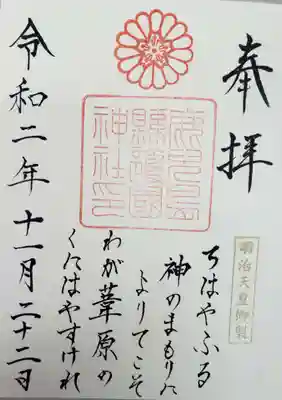 奉拝
明治天皇御製
ちはやふる
神のまもりに
よりてこそ
わが葦原の
くにはやすけれ
鹿児島
縣護國
神社印
令和二年十一月二十二日